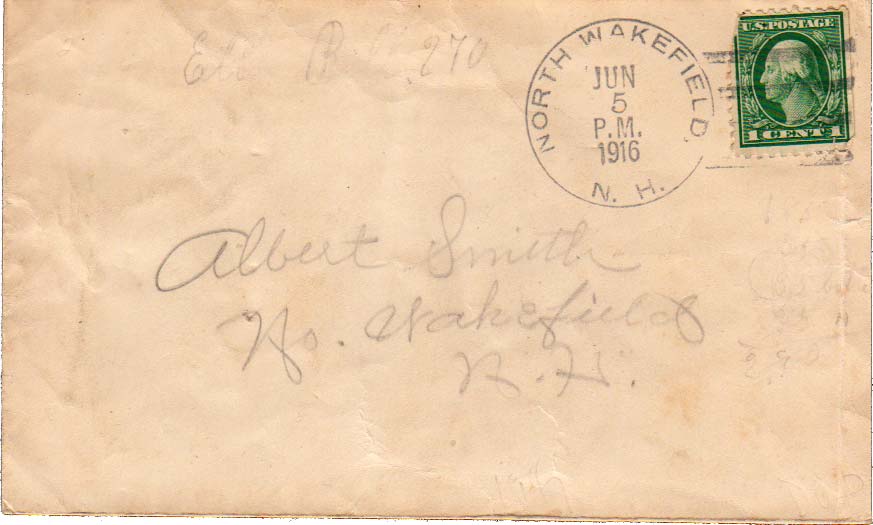 270
NORTH WAKEFIELD,
N. H.
JUN
5
P.M.
1916
U.S. POSTAGE
1 CENT 1
Albert Smith
No. Wakefield
N.H.